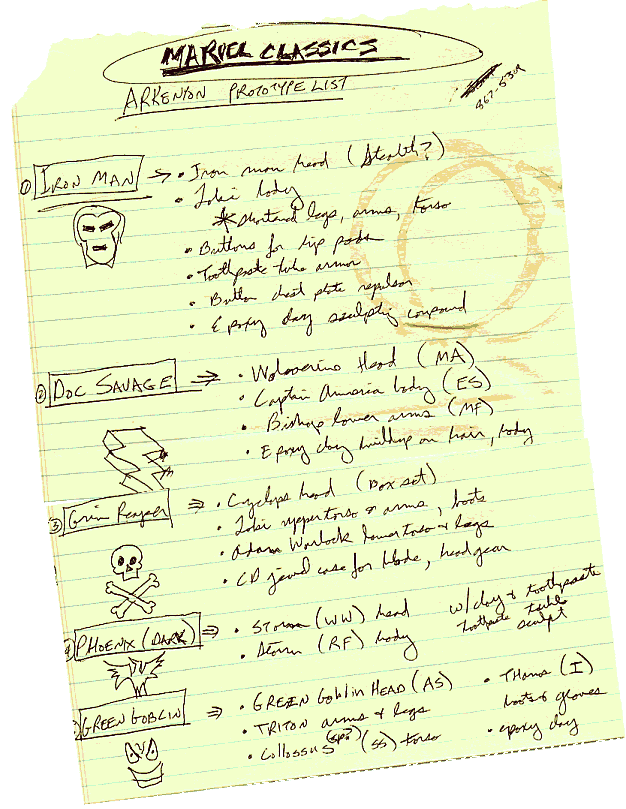 MARVEL CLASSICS
ARKENTON PROTOTYPE LIST
867-5309
① IRON MAN → • Iron man head (Stealth?)
• Loki body
* shortened legs, arms, torso
• Buttons for hip pods
• Toothpaste tube armor
• Button chest plate repulsor
• Epoxy clay sculpting compound
② DOC SAVAGE ⇒ • Wolverine Head (MA)
• Captain America body (ES)
• Bishop lower arms (MF)
• Epoxy clay buildup on hair, body
③ Grim Reaper ⇒ • Cyclops head (Box set)
• Loki upper torso & arms, boots
• Adam Warlock lower torso & legs
• CD jewel case for blade, headgear
④ PHOENIX (DARK) ⇒ • STORM (WW) head
• Storm (RF) body
w/clay & toothpaste
toothpaste tube
sculpt
GREEN GOBLIN ⇒ • GREEN Goblin HEAD (AS)
• TRITON arms & legs
• Collossus (SS) torso
• THANOS (I)
boots & gloves
• epoxy clay